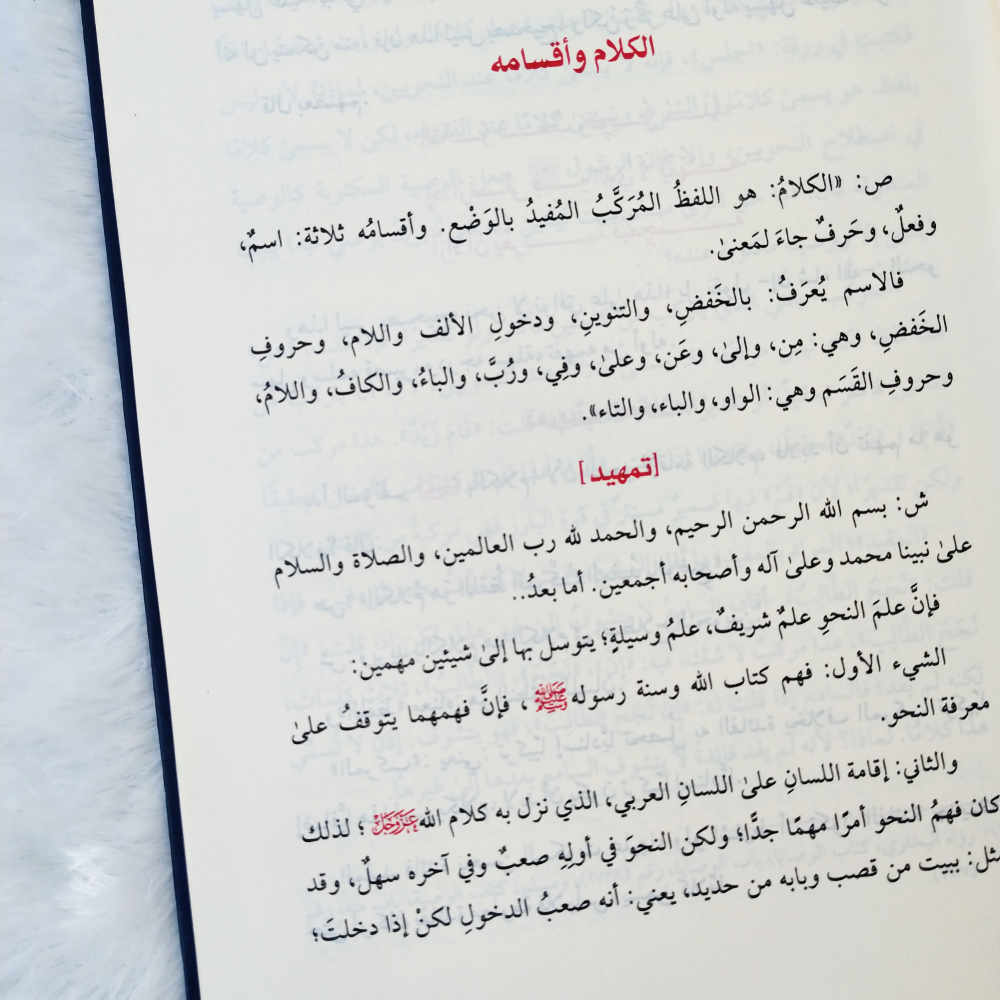 الكلام وأقسامه
ص: «الكلامُ: هو اللفظُ المُرَكَّبُ المُفيدُ بالوَضْع. وأقسامُه ثلاثة: اسمٌ،
وفعلٌ، وحَرفٌ جاءَ لمَعنىٰ.
فالاسم يُعرَفُ: بالخَفضِ، والتنوينِ، ودخولِ الألف واللام، وحروفِ
الخَفضِ، وهي: مِن، وإلىٰ، وعَن، وعلىٰ، وفِي، ورُبَّ، والباءُ، والكافُ، واللامُ،
وحروفِ القَسَم وهي: الواو، والباء، والتاء».
[تمهيد]
ش: بسم الله الرحمن الرحيم، والحمد لله رب العالمين، والصلاة والسلام
علىٰ نبينا محمد وعلىٰ آله وأصحابه أجمعين. أما بعدُ..
فإنَّ علمَ النحوِ علمٌ شريفٌ، علمُ وسيلةٍ؛ يتوسل بها إلىٰ شيئين مهمين:
الشيء الأول: فهم كتاب الله وسنة رسوله ﷺ، فإنَّ فهمهما يتوقفُ علىٰ
معرفة النحو.
والثاني: إقامة اللسانِ علىٰ اللسانِ العربي، الذي نزل به كلام الله عَزَّوَجَلَّ؛ لذلك
كان فهمُ النحو أمرًا مهمًا جدًّا؛ ولكن النحوَ في أولِهِ صعبٌ وفي آخره سهلٌ، وقد
مثل: ببيت من قصب وبابه من حديد، يعني: أنه صعبُ الدخولِ لكنْ إذا دخلتَ؛